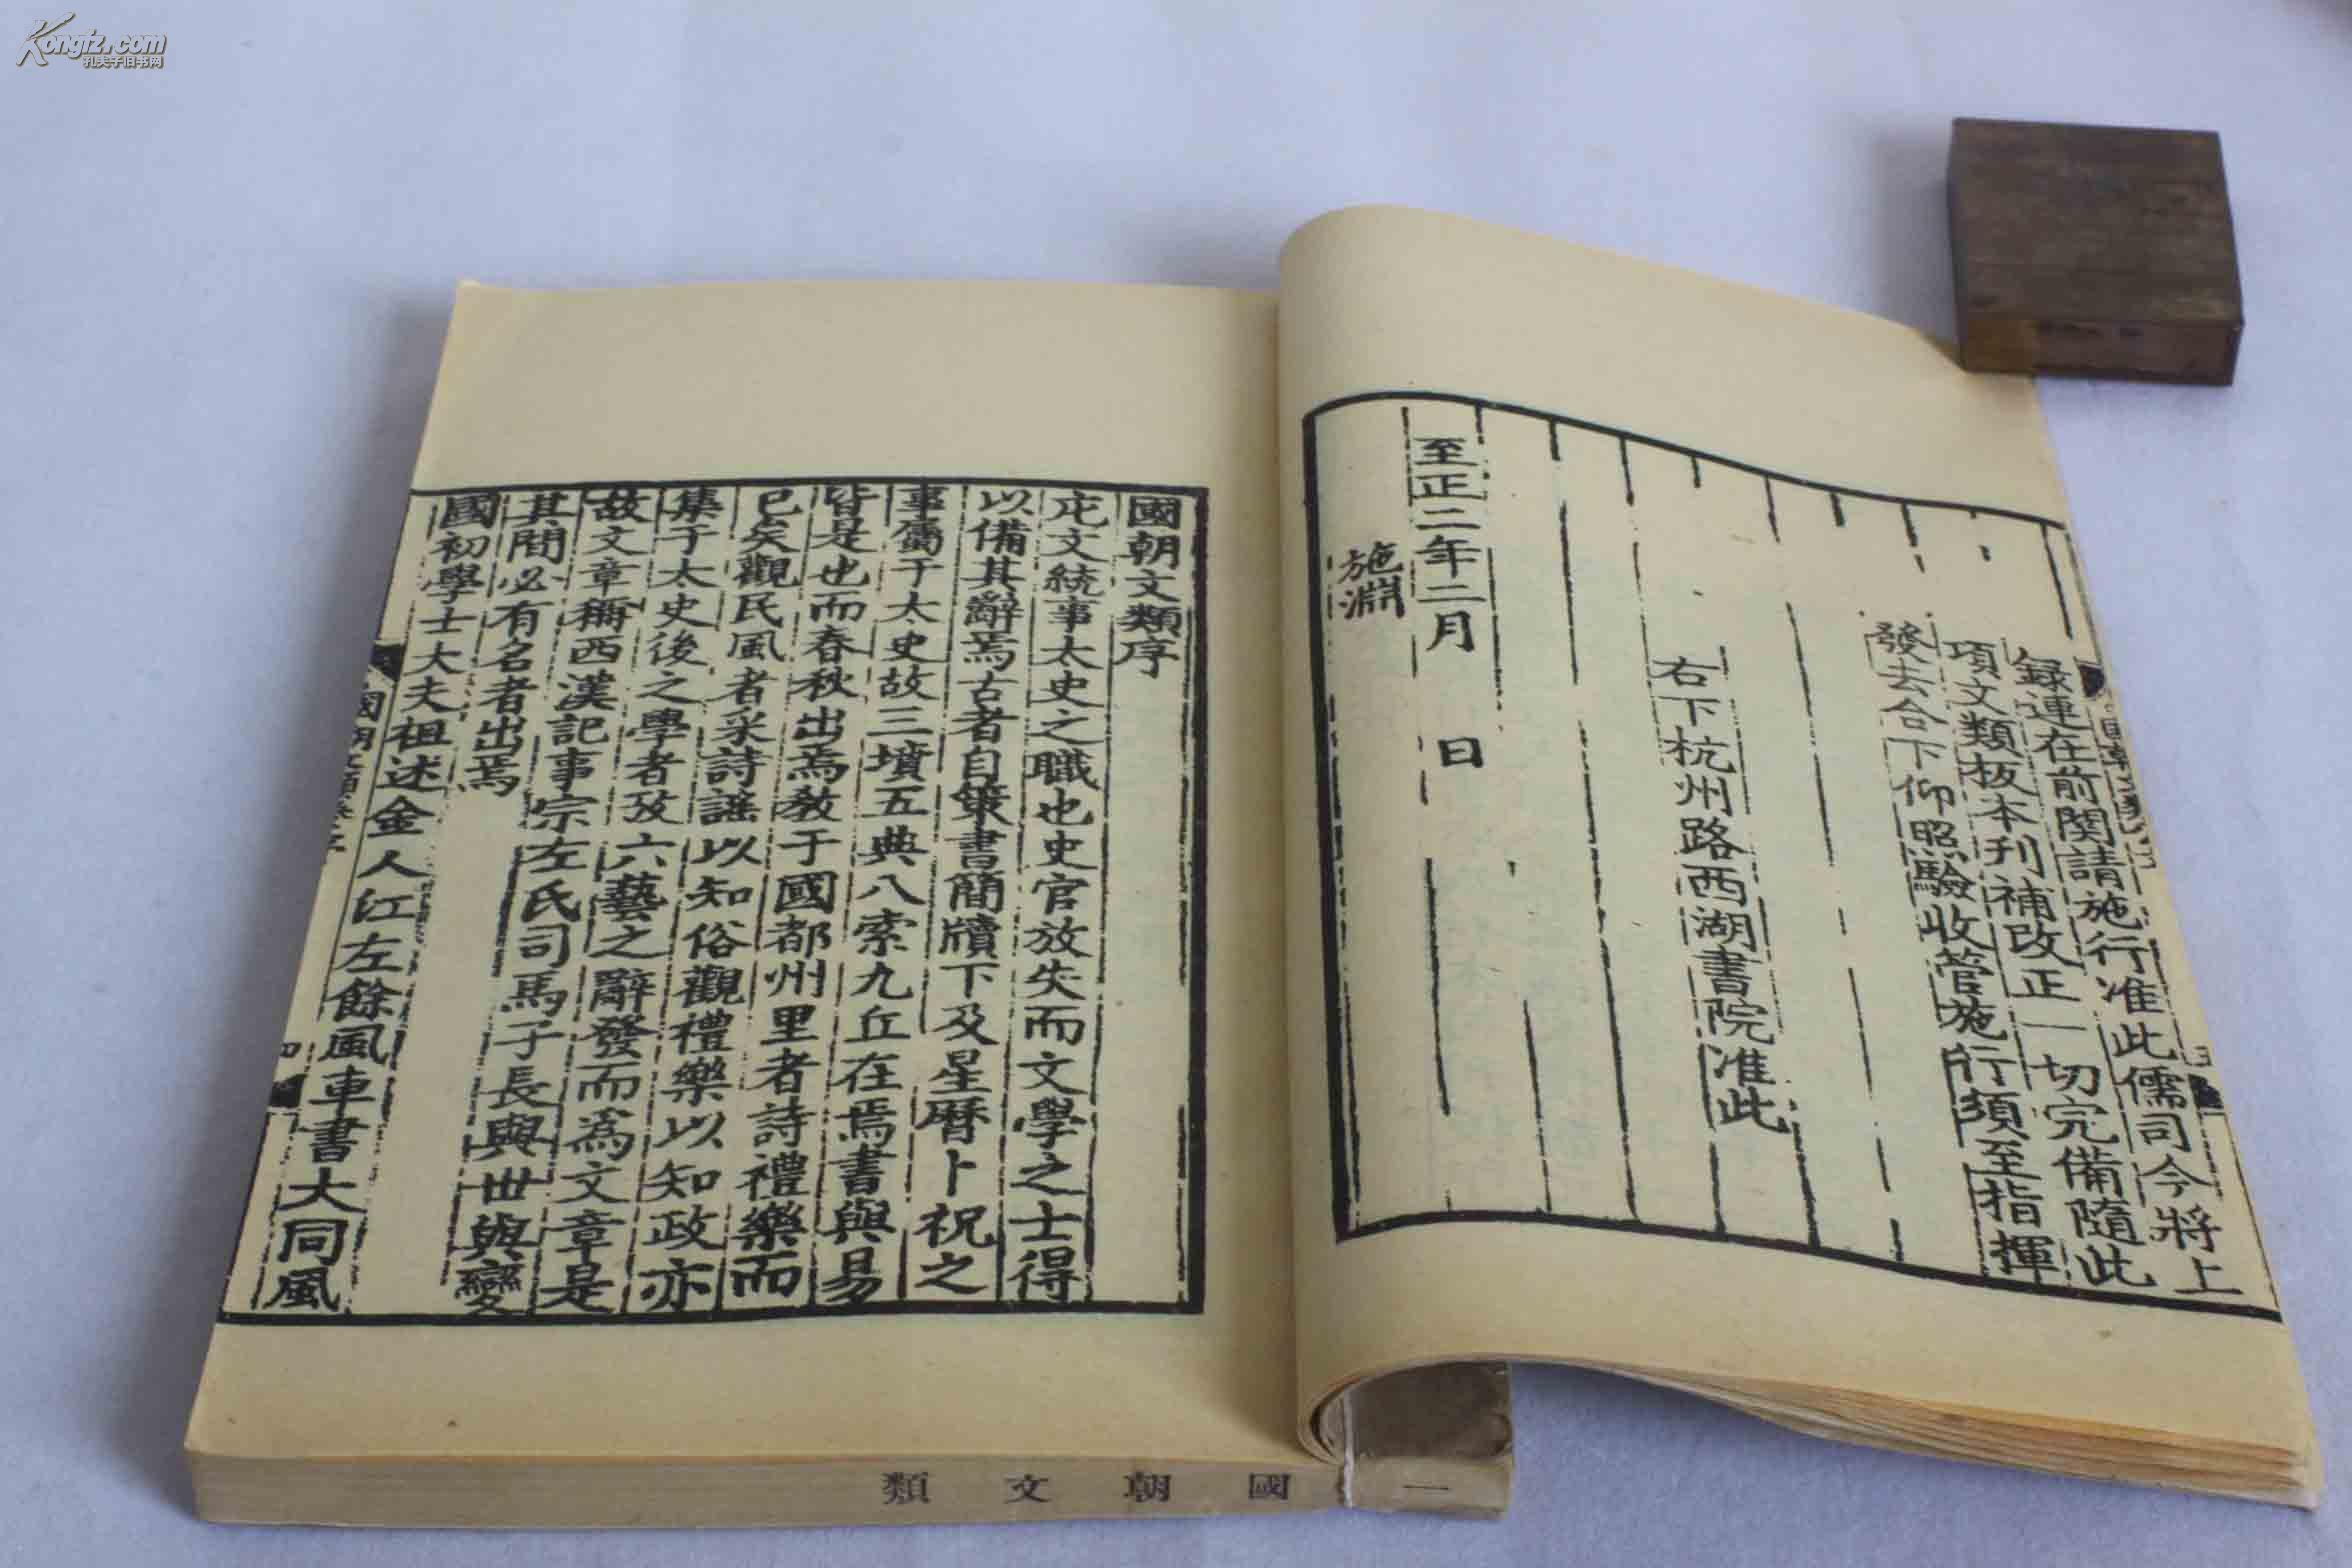 Kongfz.com
孔夫子旧书网
録連在前関請施行准此儒司今將上
項文類板本刊補改正一切完備隨此
發去合下仰照驗收管施行須至指揮
右下杭州路西湖書院准此
至正二年二月 日
施淵
國朝文類序
庀文統事太史之職也史官放失而文學之士得
以備其辭焉古者自策書簡牘下及星曆卜祝之
事屬于太史故三墳五典八索九丘在焉書與易
皆是也而春秋出焉教于國都州里者詩禮樂而
已矣觀民風者采詩謡以知俗觀禮樂以知政亦
集于太史後之學者攷六藝之辭發而爲文章是
故文章稱西漢記事宗左氏司馬子長與世與變
其間必有名者出焉
國初學士大夫祖述金人江左餘風車書大同風
一 國朝文類